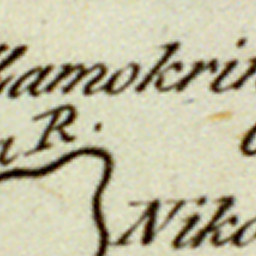 amokrin
a R.
Niko